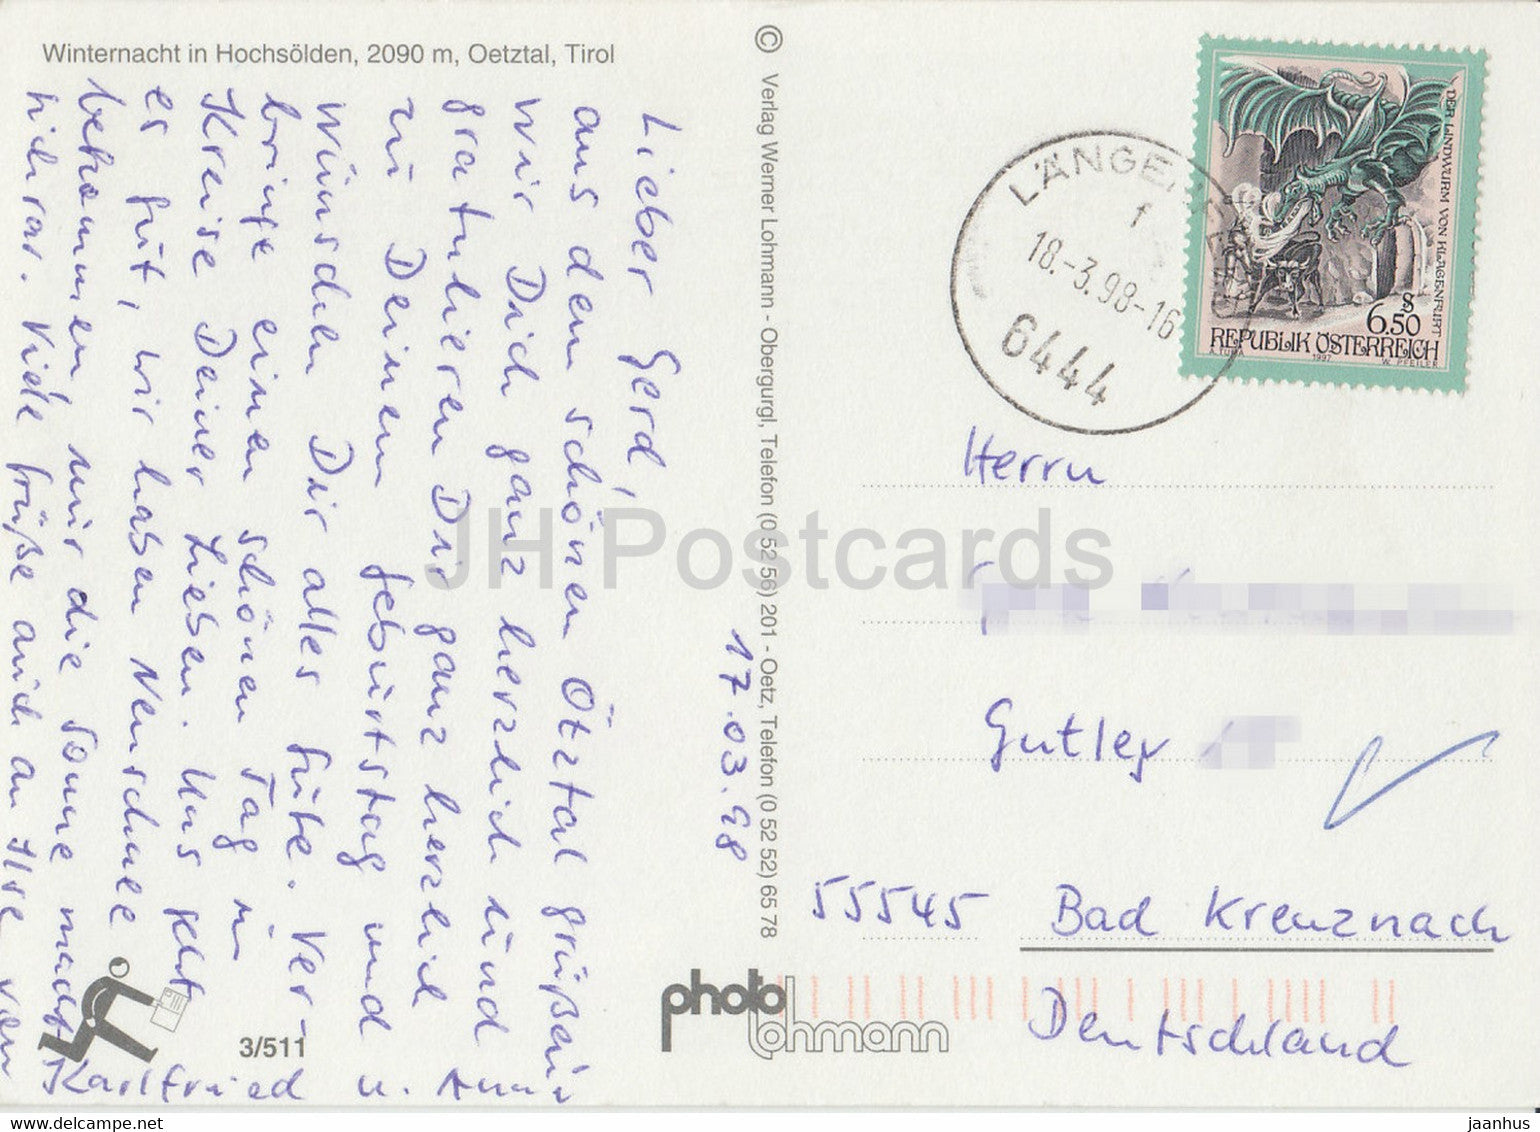 Winternacht in Hochsölden, 2090 m, Oetztal, Tirol
Lieber Gerd,
aus dem schönen Ötztal grüßen
wir Dich ganz herzlich und
gratulieren Dir ganz herzlich
zu Deinem Geburtstag und
wünschen Dir alles Gute. Ver-
bringe einen schönen Tag im
Kreise Deiner Lieben. Uns geht
es gut, wir haben Neuschnee
bekommen nur die Sonne macht
sich rar. Viele Grüße auch an Ilse von
Karlfried u. Anni
17.03.98
3/511
© Verlag Werner Lohmann - Obergurgl, Telefon (0 52 56) 201 - Oetz, Telefon (0 52 52) 65 78
photo
lohmann
LÄNGENFELD
1
18.-3.98-16
6444
DER LINDWURM VON KLAGENFURT
S
6.50
REPUBLIK ÖSTERREICH
1997
W. PFEILER
Herrn
Gutley
55545 Bad Kreuznach
Deutschland
JH Postcards
www.delcampe.net
jaanhus